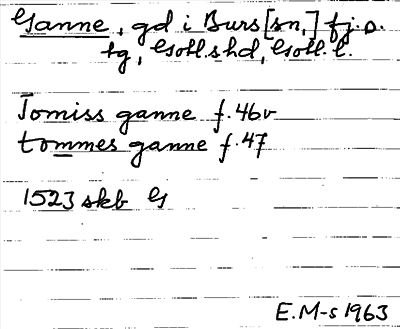 Ganne, gd i Burs [sn,] fj.o.
tg, Gotl.shd, Gotl.l.
Tomiss ganne f.46v
tommes ganne f.47
1523 skb G
E.M-s 1963